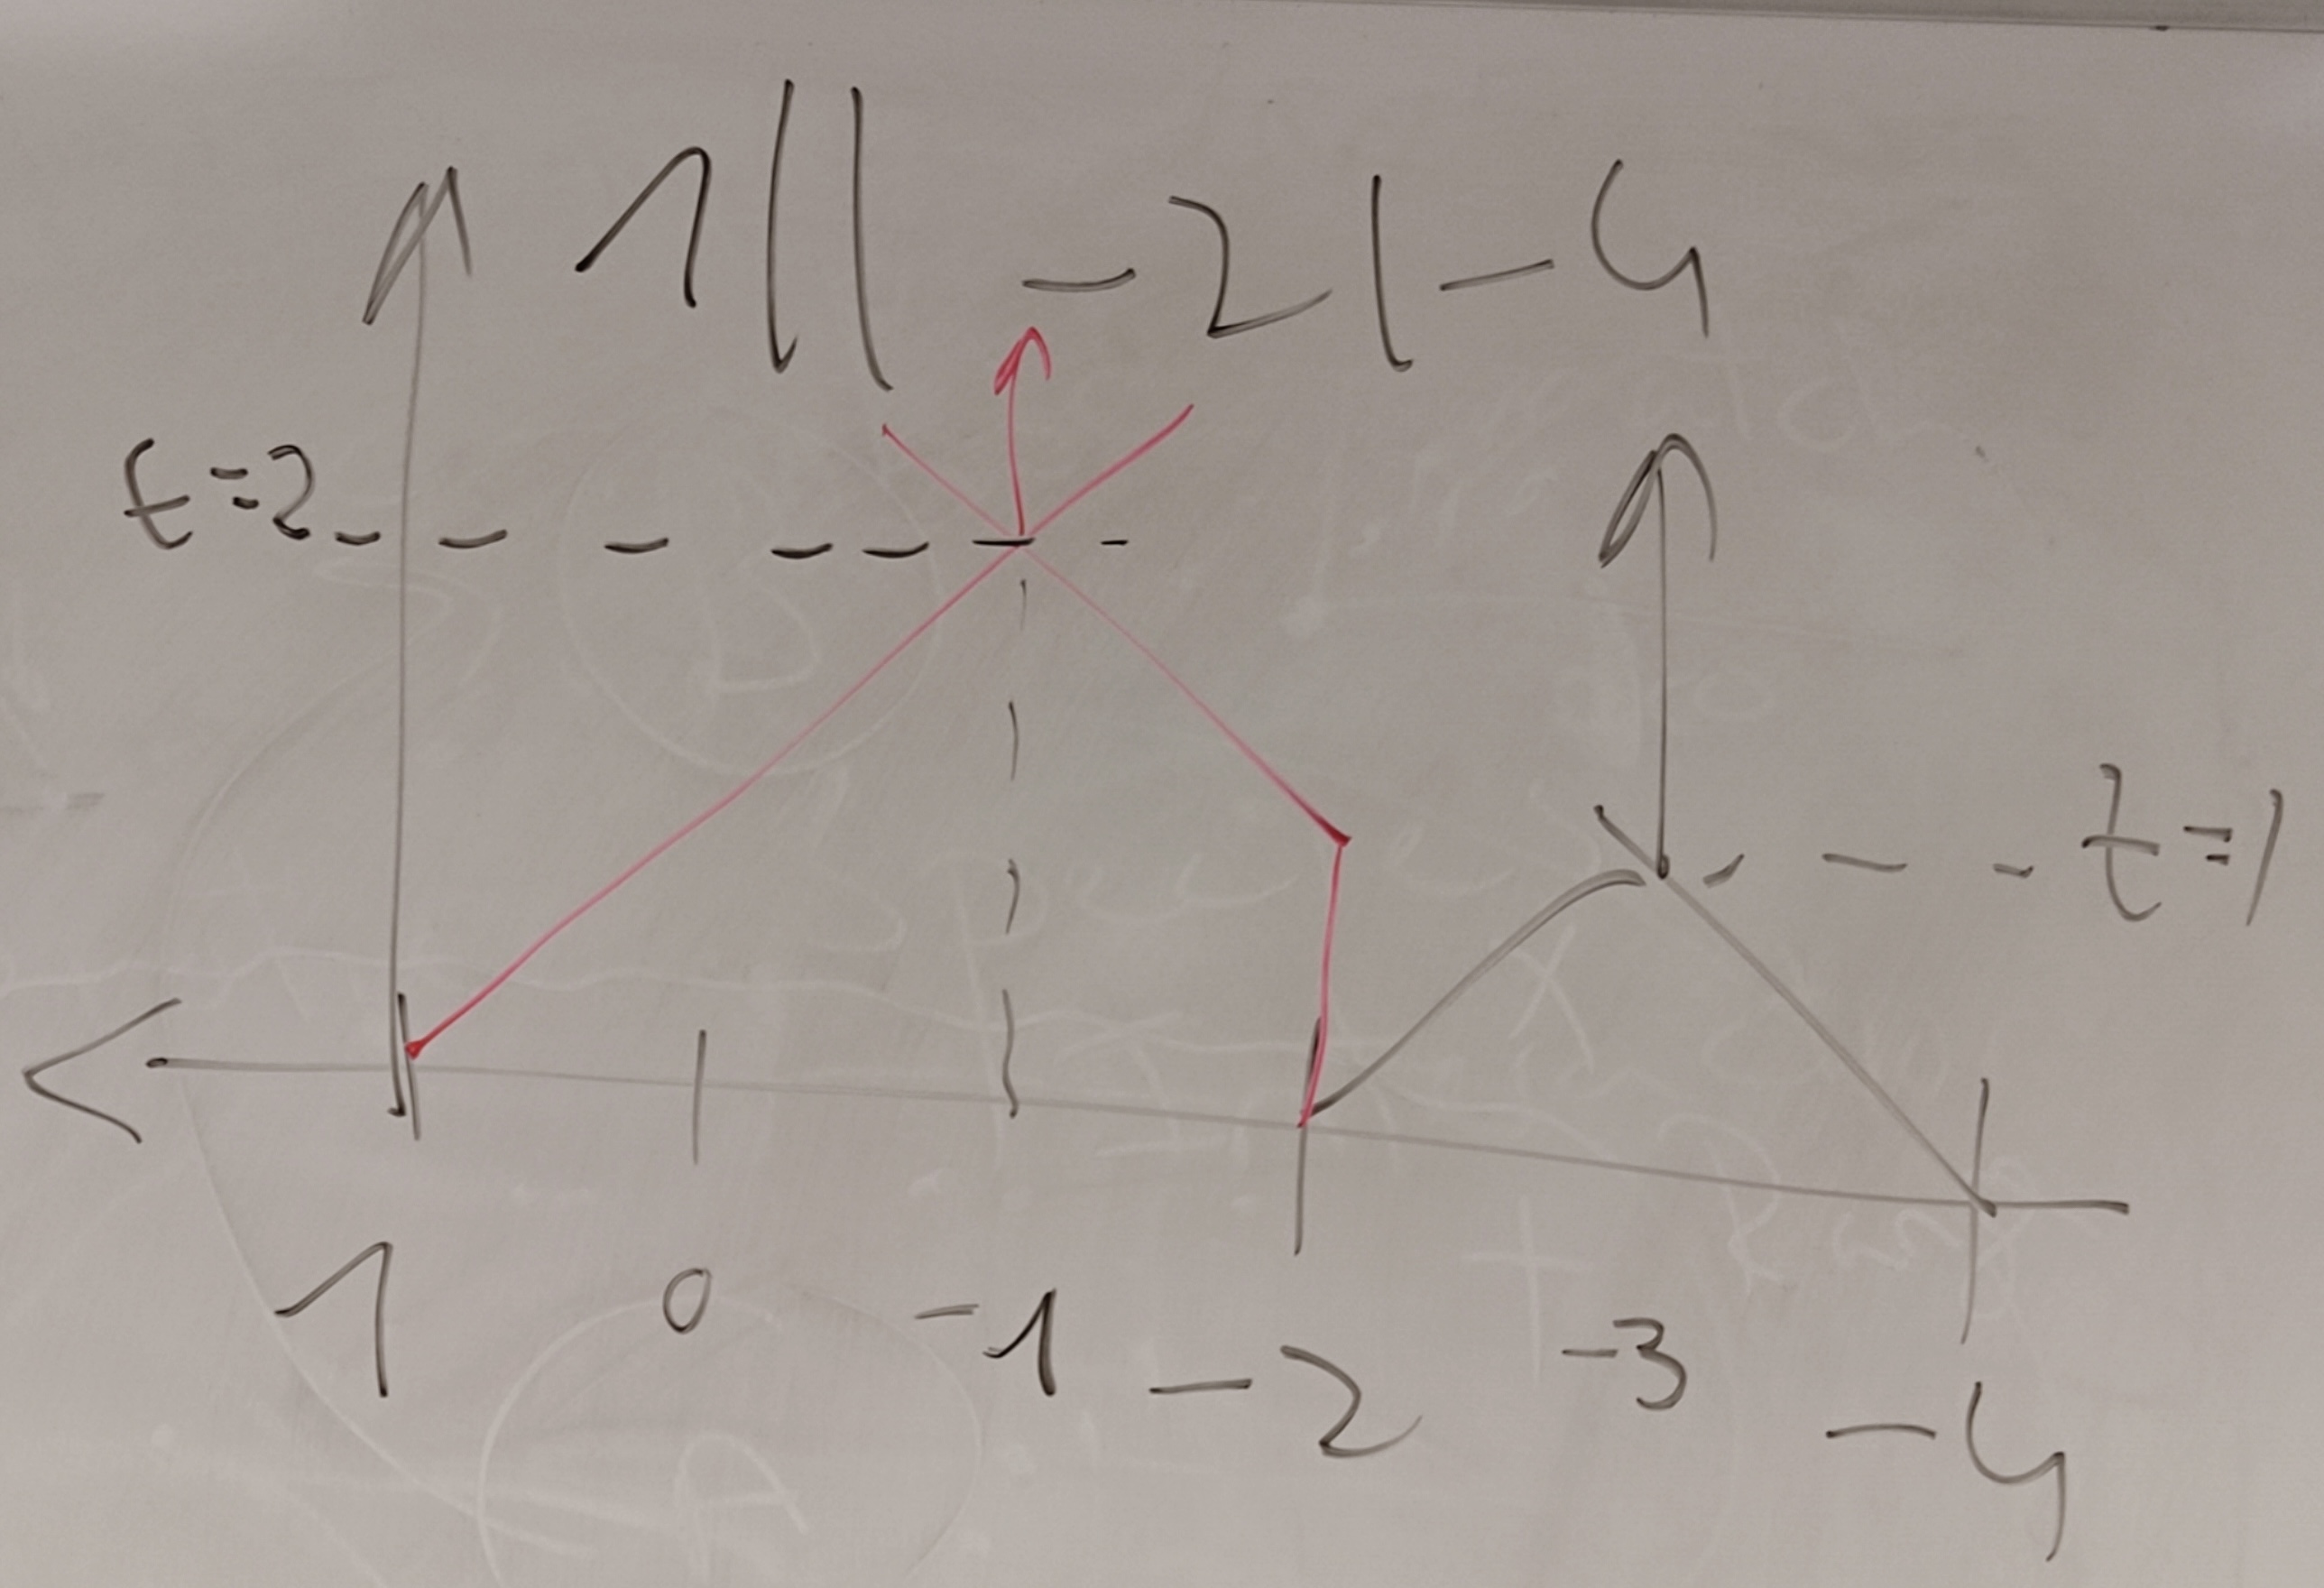 1 || -2 | -4
t=2
t=1
1 0 -1 -2 -3 -4